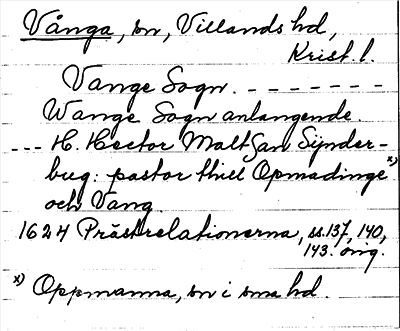 Vånga, sn, Villands hd,
Krist. l.
Vange Sogn. - - - - - - -
Wange Sogn anlangende.
--- H. Hector Maltzan Sÿnder-
bug: pastor thill Opmadinge x)
och Vang.
1624 Prästrelationerna, ss. 137, 140,
143. orig.
x) Oppmanna, sn i sma hd.